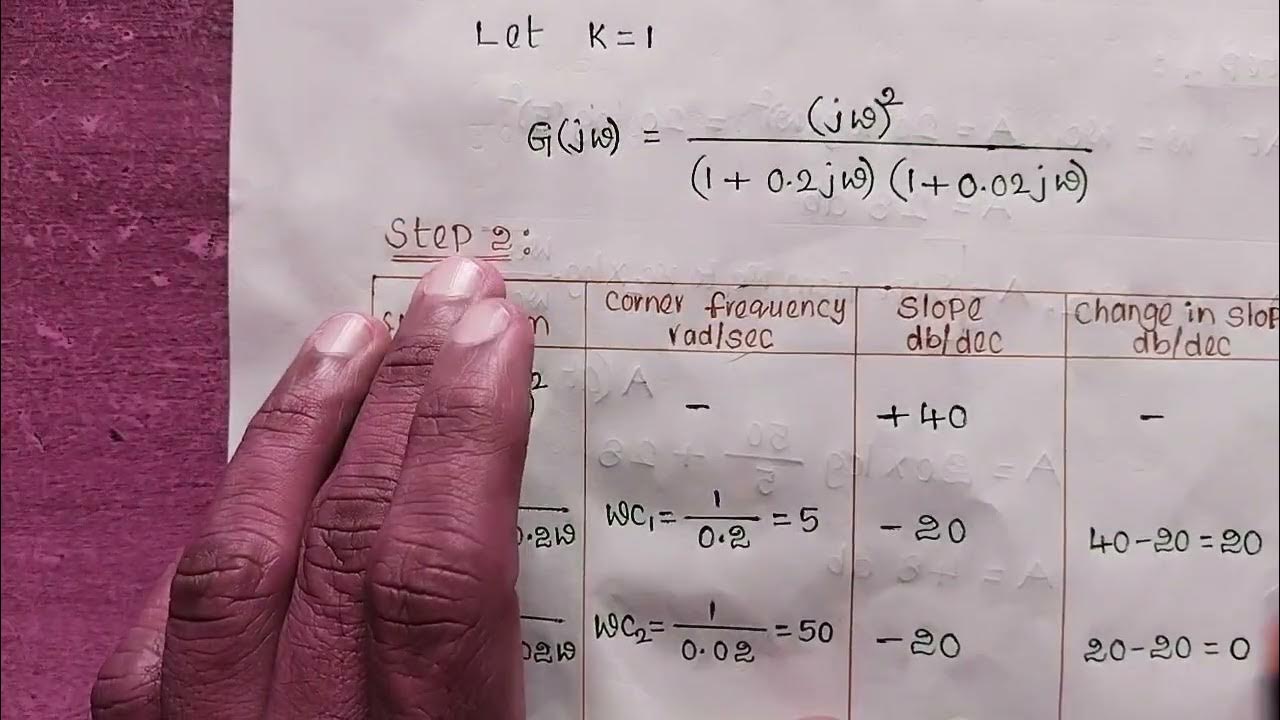 Let K = 1
G(jω) = (jω)²
(1 + 0.2jω) (1 + 0.02jω)
Step 2:
Corner frequency rad/sec
Slope db/dec
Change in slop db/dec
–
+40
–
0.2ω
ωc₁ = 1/0.2 = 5
-20
40-20 = 20
02ω
ωc₂ = 1/0.02 = 50
-20
20-20 = 0